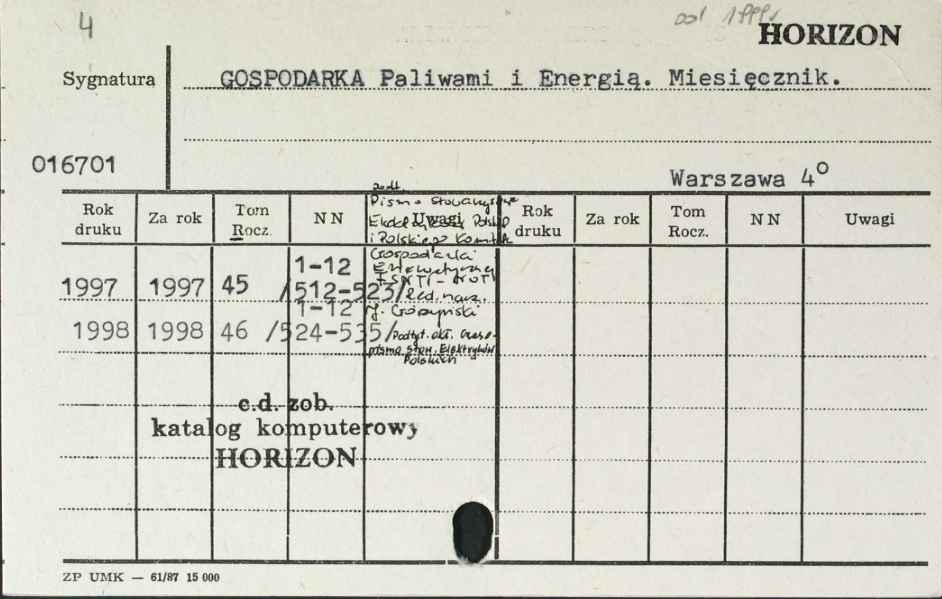 4
od 1999r
HORIZON
Sygnatura GOSPODARKA Paliwami i Energią. Miesięcznik.
016701
Warszawa 4°
Rok druku Za rok Tom Rocz. NN Uwagi Rok druku Za rok Tom Rocz. NN Uwagi
podt.
Pismo Stowarzysze
Elektryków Polskich
i Polskiego Komit.
Gospodarki
Energetycznej
FSNTI-NOT/
1997 1997 45 1-12 /512-523/ Red. nacz.
J. Górzyński
1998 1998 46 1-12 /524-535/ Podtyt. okł. Czaso-
pismo Stow. Elektryków
Polskich
c.d. zob.
katalog komputerowy
HORIZON
ZP UMK — 61/87 15 000